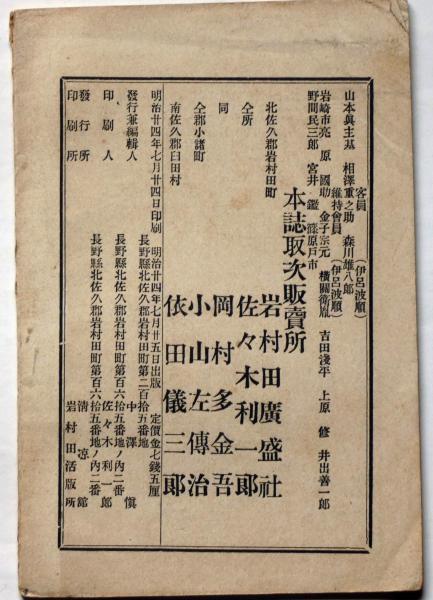 客員（伊呂波順）
山本與主基　相澤重之助　森川雄八郎
維持會員（伊呂波順）
岩崎市亮　原　國助　金子宗元　横關衛胤　吉田淺平　上原　修　井出善一郎
野間民三郎　宮井　鑑　篠原戸市
本誌取次販賣所
北佐久郡岩村田町　岩村田廣盛社
仝所　佐々木利一郎
同　岡村多金吾
仝郡小諸町　小山左傳治
南佐久郡臼田村　依田儀三郎
明治廿四年七月廿四日印刷　明治廿四年七月廿五日出版　定價金七錢五厘
長野縣北佐久郡岩村田町第二百拾五番地
發行兼編輯人　中澤愼
長野縣北佐久郡岩村田町第百六拾五番地ノ內二番
印刷人　佐々木利一郎
長野縣北佐久郡岩村田町第百六拾五番地ノ內二番
發行所　清凉舘
印刷所　岩村田活版所